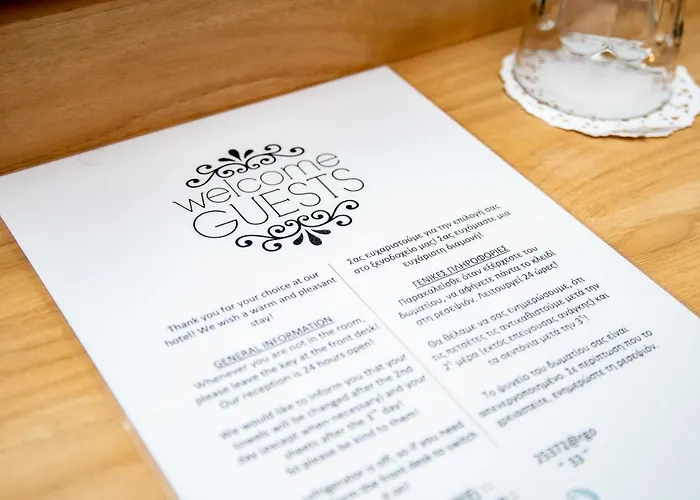 welcome
GUESTS
Thank you for your choice at our
hotel! We wish a warm and pleasant
stay!
GENERAL INFORMATION
Whenever you are not in the room,
please leave the key at the front desk!
Our reception is 24 hours open!
We would like to inform you that your
towels will be changed after the 2nd
day (except when necessary) and your
sheets after the 3rd day!
So please be kind to them!
refrigerator is off, so if you need
the front desk to switch
it on!
Σας ευχαριστούμε για την επιλογή σας
στο ξενοδοχείο μας! Σας ευχόμαστε μια
ευχάριστη διαμονή!
ΓΕΝΙΚΕΣ ΠΛΗΡΟΦΟΡΙΕΣ
Παρακαλείσθε όταν εξέρχεστε του
δωματίου, να αφήνετε πάντα το κλειδί
στη ρεσεψιόν. Λειτουργεί 24 ώρες!
Θα θέλαμε να σας ενημερώσουμε, ότι
τις πετσέτες τις αντικαθιστούμε μετά την
2η μέρα (εκτός επείγουσας ανάγκης) και
τα σεντόνια μετά την 3η!
Το ψυγείο του δωματίου σας είναι
απενεργοποιημένο. Σε περίπτωση που το
χρειαστείτε, ενημερώστε τη ρεσεψιόν.
" 33 "